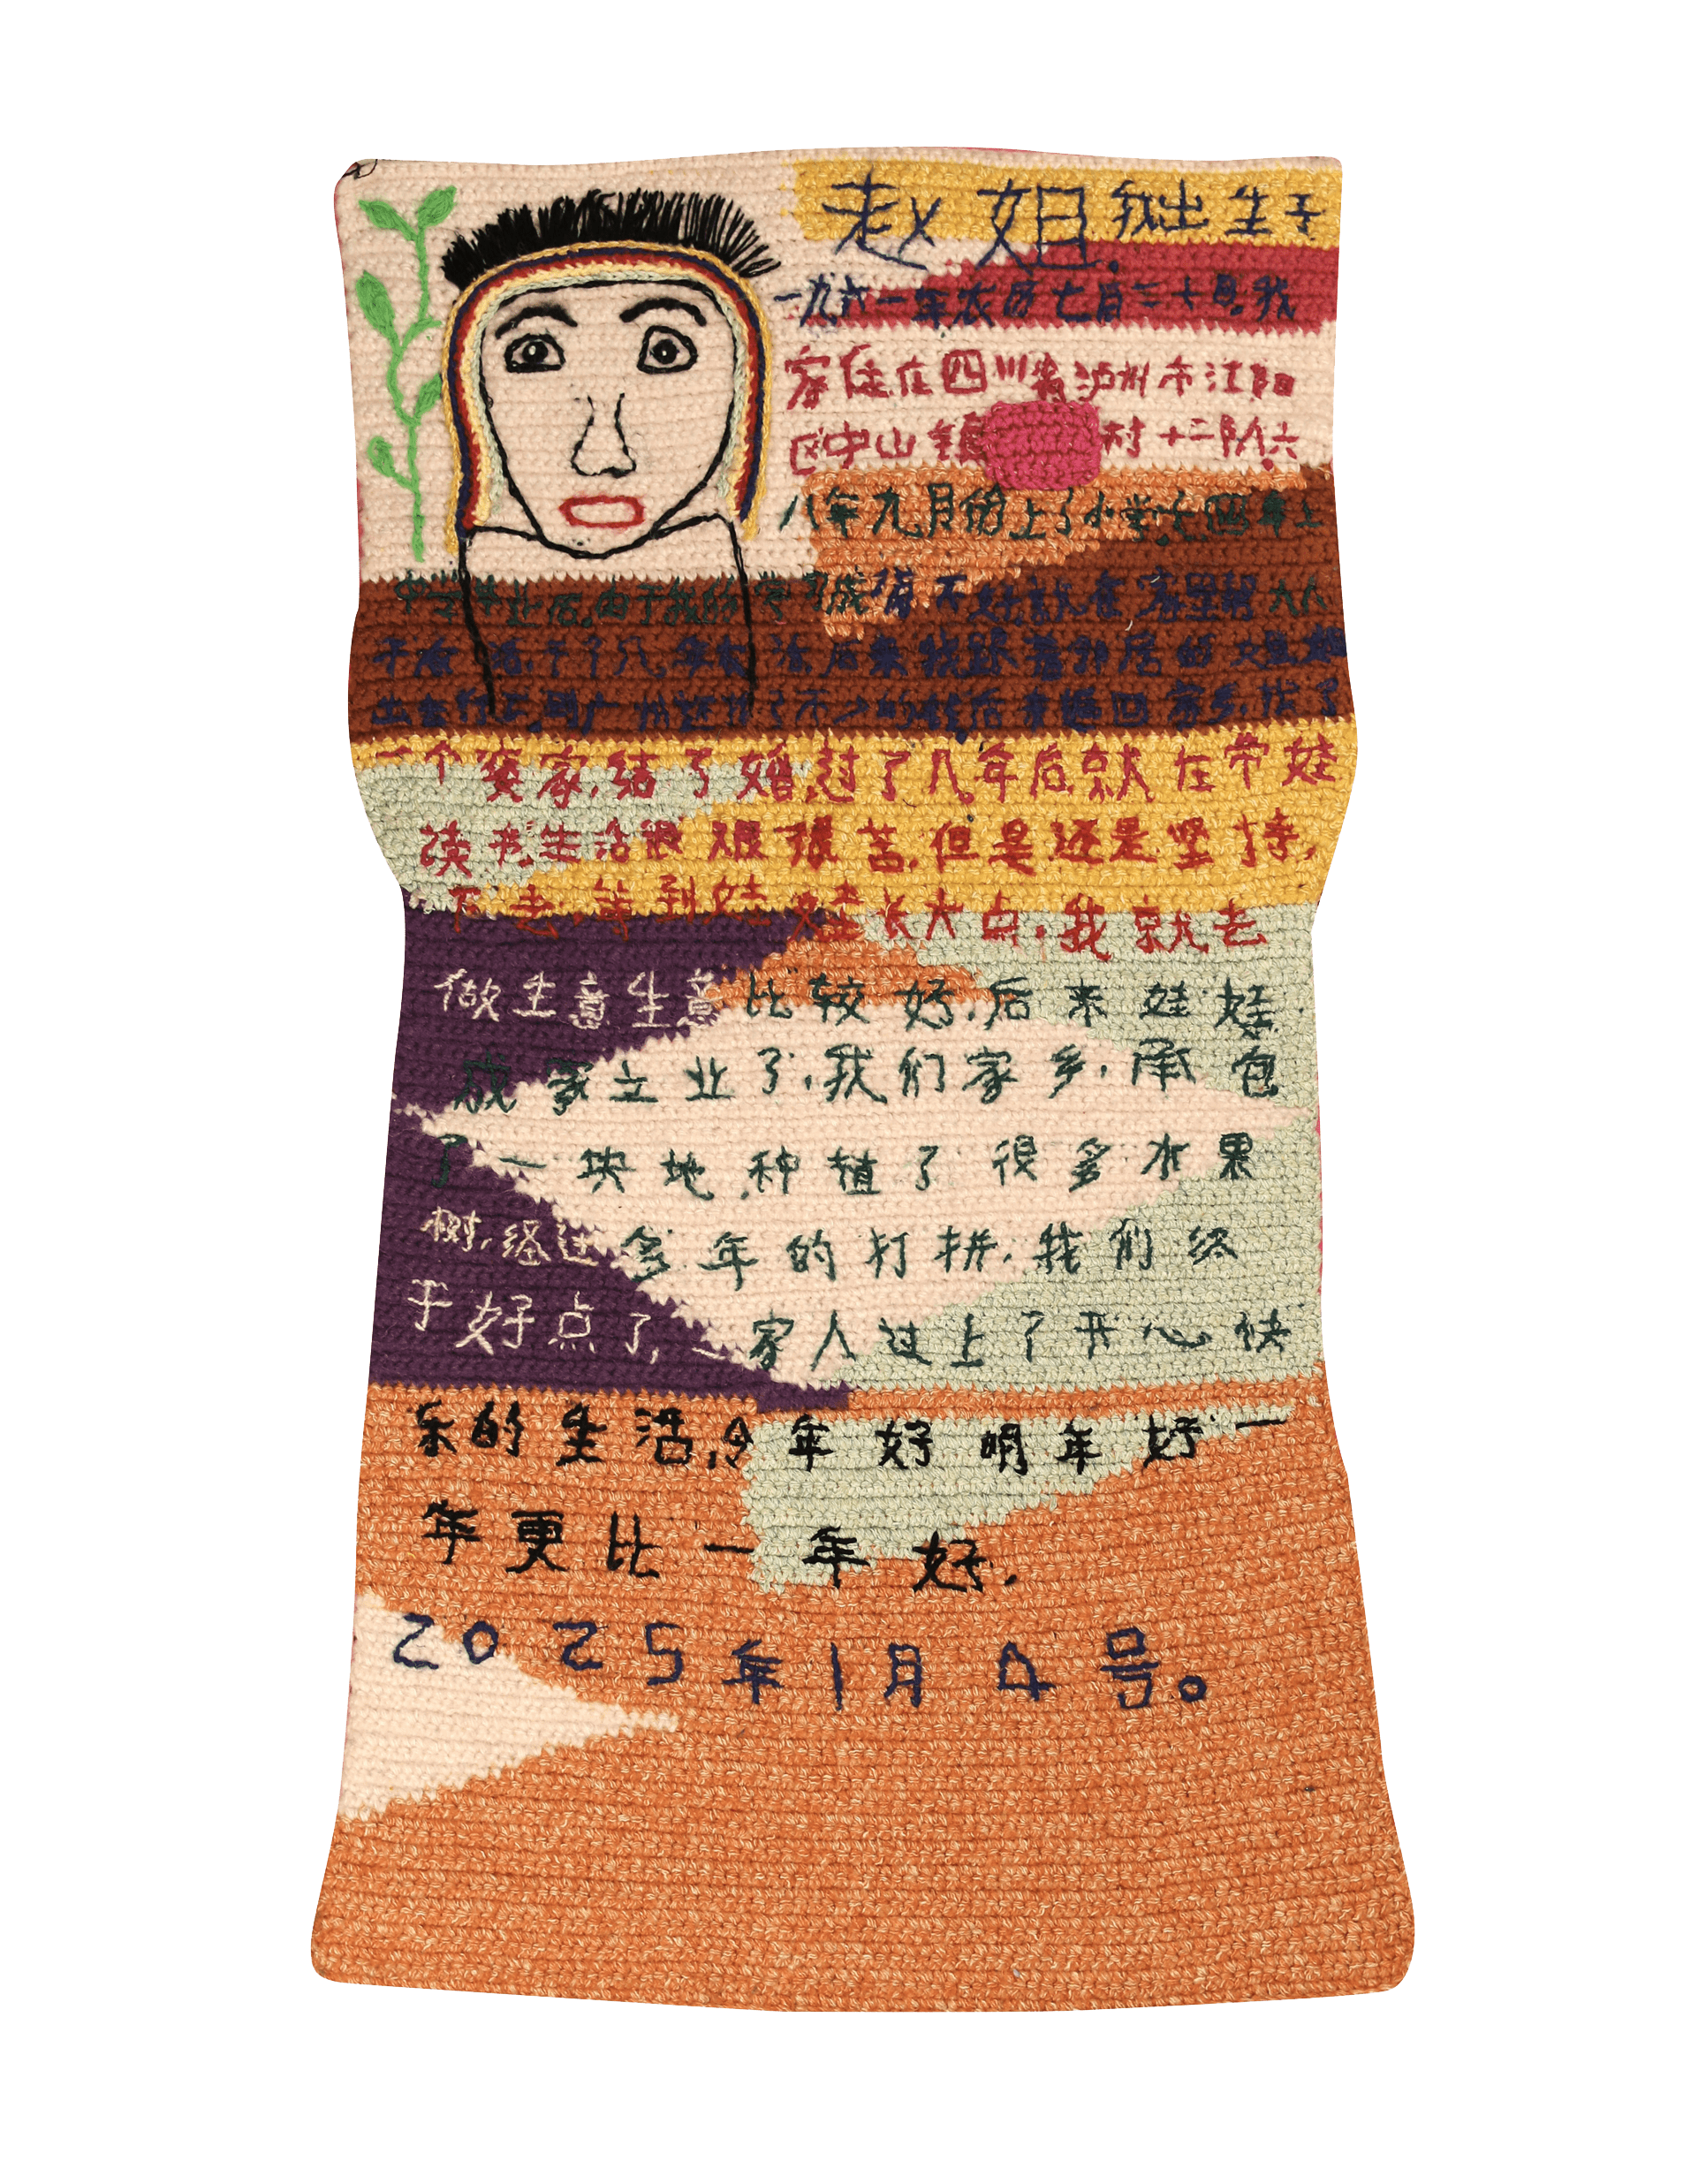 赵姐.我出生于
一九六一年农历七月三十日.我
家住在四川省泸州市江阳
区中山镇 村十二队.六
八年九月份上了小学.七四年上
中学毕业后,由于我的学习成绩不好就在家里帮大人
干农活,干了几年农活后来我跟着邻居的
出去打工,到广州 了不少的钱后来回家乡,找了
一个婆家,结了婚,过了几年后就在带娃
读书生活很艰很苦,但是还是坚持,
下去,等到娃娃长大点,我就去
做生意生意比较好,后来娃娃
成家立业了,我们家乡,承包
了一块地,种植了很多水果
树,经过多年的打拼,我们终
于好点了,一家人过上了开心快
乐的生活,今年好明年好一
年更比一年好.
2025年1月4号。